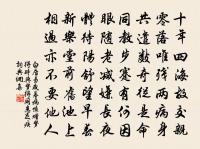 十年四海故交親
零落唯殘兩病身
共遣數奇從是命
同教步蹇有何因
眼隨老減嫌長夜
體待陽舒望早春
新樂堂前舊池上
相過亦不要他人
白居易歲暮病懷贈夢
得時與夢得同患足疾